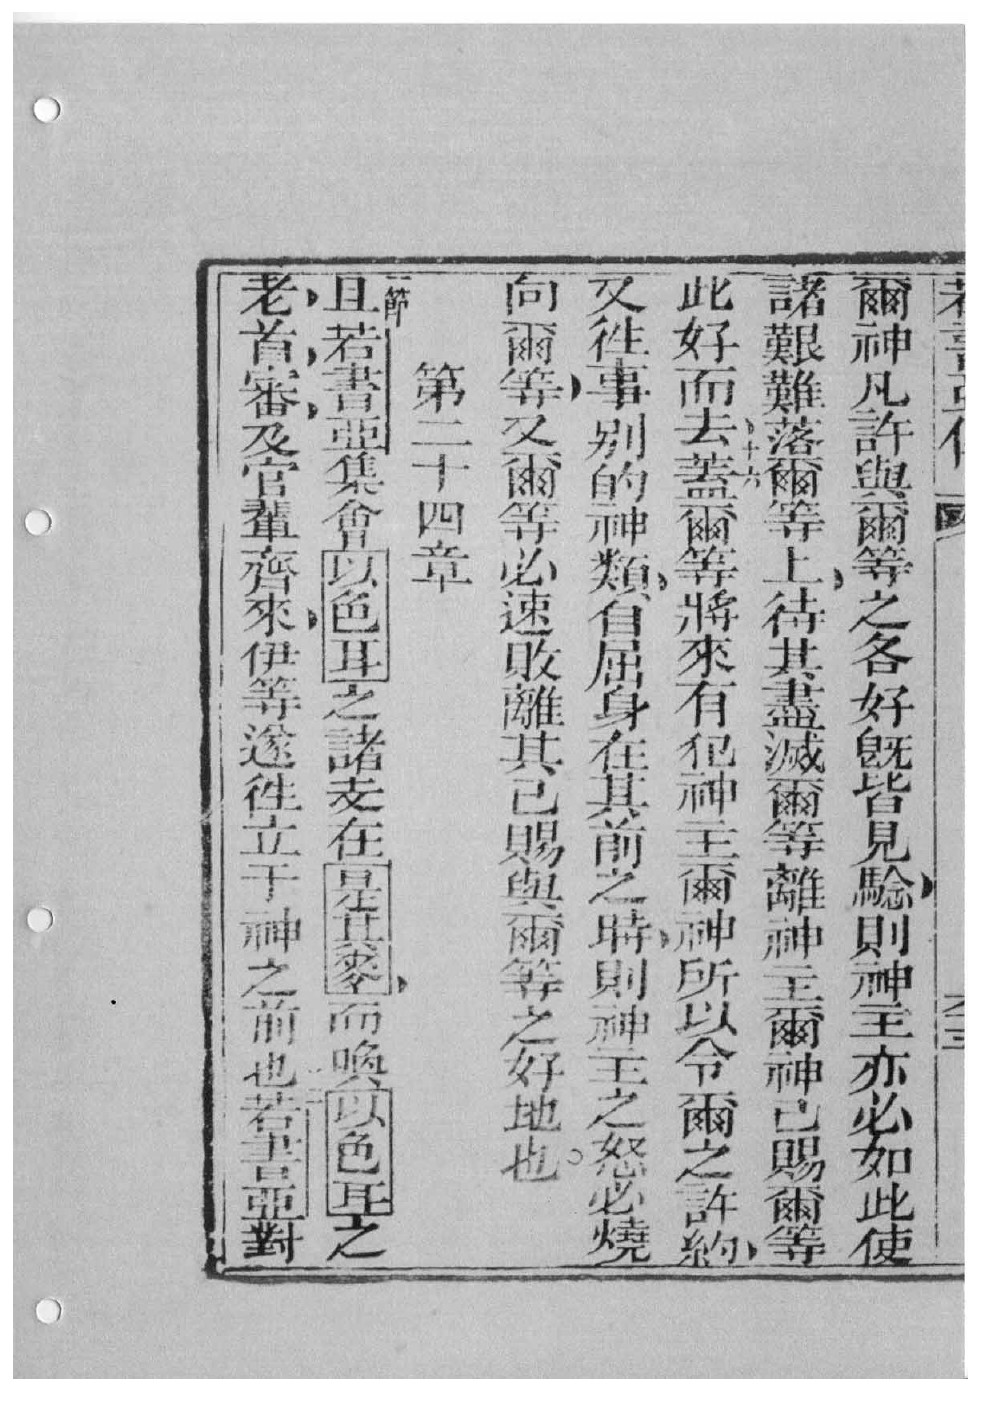 爾神凡許與爾等之各好既皆見騐則神主亦必如此使
諸艱難落爾等上待其盡滅爾等離神主爾神已賜爾等
十六
此好而去蓋爾等將來有犯神主爾神所以令爾之許約
又徃事别的神類自屈身在其前之時則神主之怒必燒
向爾等又爾等必速敗離其已賜與爾等之好地也。
第二十四章
一節
且若書亞集會以色耳之諸支在是其麥而喚以色耳之
老首審及官輩齊來伊等遂徃立于神之前也若書亞對